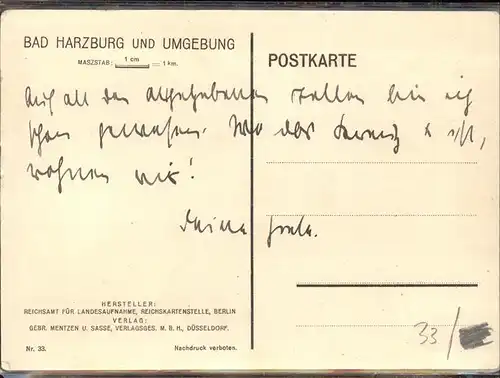 BAD HARZBURG UND UMGEBUNG
MASZSTAB: 1 cm = 1 km.
POSTKARTE
Auf all den angegebenen Stellen bin ich
schon gewesen. Wo das Kreuz x ist,
wohnen wir!
Deine
HERSTELLER:
REICHSAMT FÜR LANDESAUFNAHME, REICHSKARTENSTELLE, BERLIN
VERLAG:
GEBR. MENTZEN U. SASSE, VERLAGSGES. M. B. H., DÜSSELDORF.
Nr. 33.
Nachdruck verboten.
33/